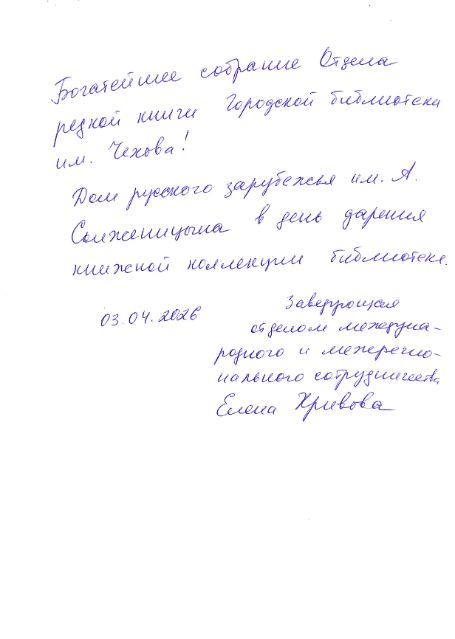 Богатейшее собрание Отдела
редкой книги Городской библиотека
им. Чехова!
Дом русского зарубежья им. А.
Солженицына в день дарения
книжной коллекции библиотеке.
03.04.2026
Заведующая
отделом междуна-
родного и межрегио-
нального сотрудничества
Елена Кривова